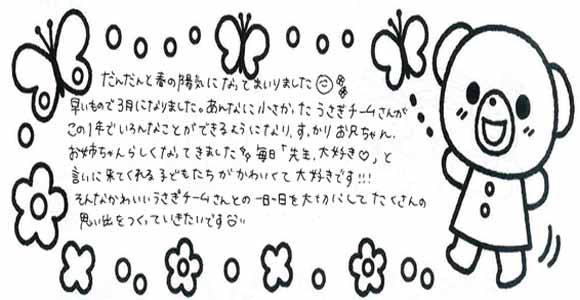 だんだんと春の陽気になってまいりました
早いもので3月になりました。あんなに小さかったうさぎチームさんが
この1年でいろんなことができるようになり、すっかりお兄ちゃん、
お姉ちゃんらしくなってきました 毎日「先生、大好き♡」と
言いに来てくれる子どもたちがかわいくて大好きです!!!
そんなかわいいうさぎチームさんとの一日一日を大切にしてたくさんの
思い出をつくっていきたいです